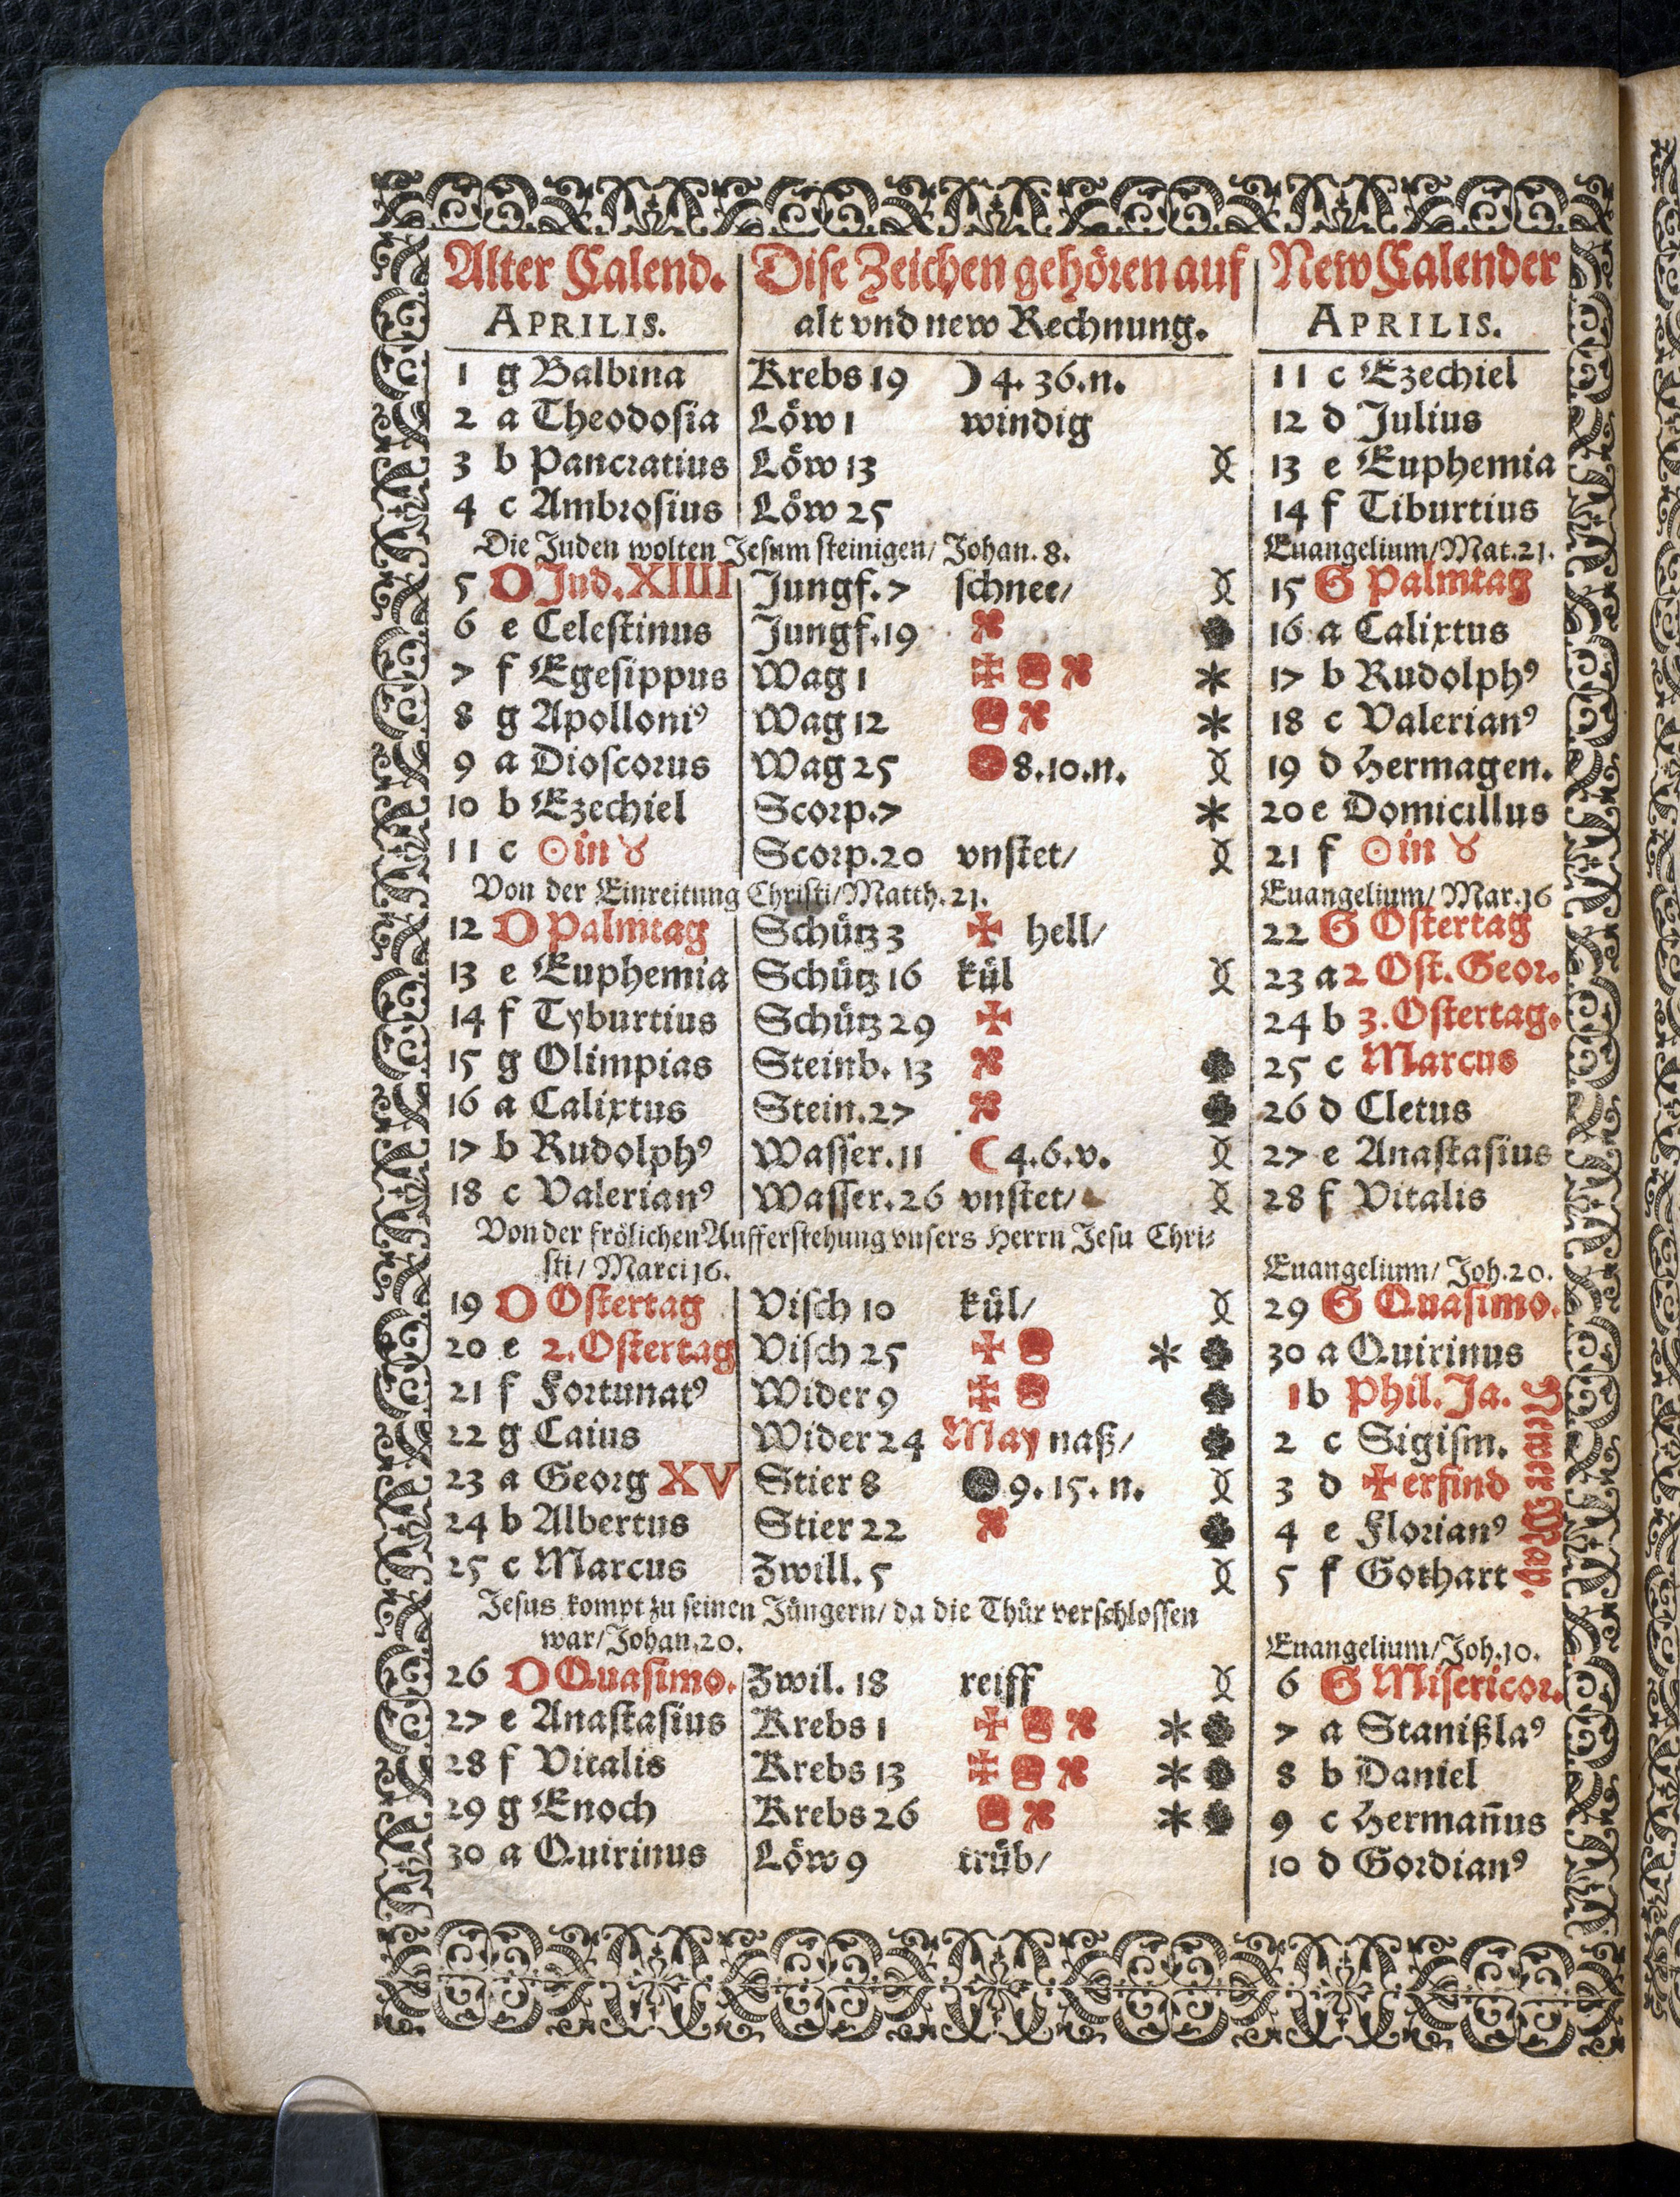 Alter Calend. Dise Zeichen gehören auf New Calender
APRILIS. alt vnd new Rechnung. APRILIS.
1 g Balbina Krebs 19 ☽ 4. 36. n. 11 c Ezechiel
2 a Theodosia Löw 1 windig 12 d Julius
3 b Pancratius Löw 13 13 e Euphemia
4 c Ambrosius Löw 25 14 f Tiburtius
Die Juden wolten Jesum steinigen/ Johan. 8. Euangelium/Mat. 21.
5 D Jud. XIIII Jungf. 7 schnee/ 15 G Palmtag
6 e Celestinus Jungf. 19 16 a Calixtus
7 f Egesippus Wag 1 17 b Rudolphꝰ
8 g Apolloniꝰ Wag 12 18 c Valerianꝰ
9 a Dioscorus Wag 25 8. 10. n. 19 d Hermagen.
10 b Ezechiel Scorp. 7 20 e Domicillus
11 c ☉ in ♉ Scorp. 20 vnstet/ 21 f ☉ in ♉
Von der Einreitung Christi/Matth. 21. Euangelium/ Mar. 16
12 D Palmtag Schütz 3 hell/ 22 G Ostertag
13 e Euphemia Schütz 16 kül 23 a 2 Ost. Geor.
14 f Tyburtius Schütz 29 24 b 3. Ostertag.
15 g Olimpias Steinb. 13 25 c Marcus
16 a Calixtus Stein. 27 26 d Cletus
17 b Rudolphꝰ Wasser. 11 ☾ 4. 6. v. 27 e Anastasius
18 c Valerianꝰ Wasser. 26 vnstet/ 28 f Vitalis
Von der frölichen Aufferstehung vnsers Herrn Jesu Chri-
sti/ Marci 16. Euangelium/ Joh. 20.
19 D Ostertag Visch 10 kül/ 29 G Quasimo.
20 e 2. Ostertag Visch 25 30 a Quirinus
21 f Fortunatꝰ Wider 9 1 b Phil. Ja.
22 g Caius Wider 24 May naß/ 2 c Sigism.
23 a Georg XV Stier 8 9. 15. n. 3 d ✠ erfind
24 b Albertus Stier 22 4 e Florianꝰ
25 c Marcus Zwill. 5 5 f Gothart
Newer May.
Jesus kompt zu seinen Jüngern/ da die Thür verschlossen
war/Johan. 20. Euangelium/Joh. 10.
26 D Quasimo. Zwil. 18 reiff 6 G Misericor.
27 e Anastasius Krebs 1 7 a Stanißlaꝰ
28 f Vitalis Krebs 13 8 b Daniel
29 g Enoch Krebs 26 9 c Hermañus
30 a Quirinus Löw 9 trüb/ 10 d Gordianꝰ